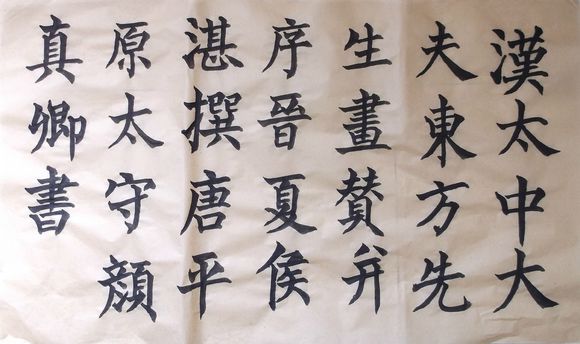 漢太中大
夫東方先
生畫賛并
序晉夏侯
湛撰唐平
原太守顔
真卿書